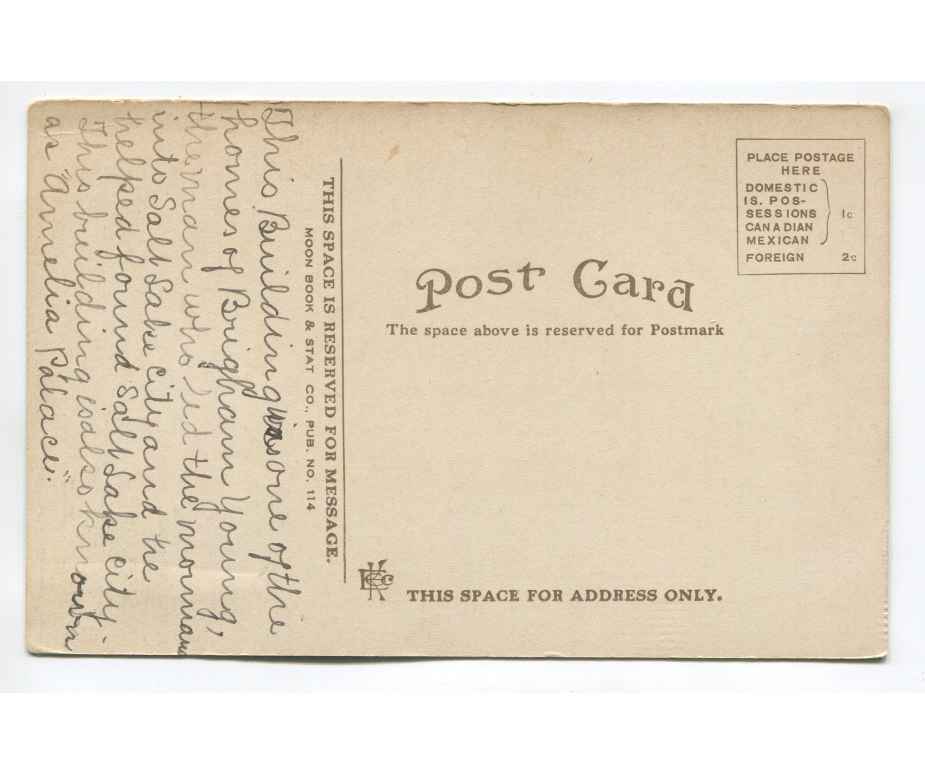 This Building was one of the
homes of Brigham Young,
the man who led the mormans
into Salt Lake City and he
helped found Salt Lake City.
This building is also known
as "Amelia Palace."
THIS SPACE IS RESERVED FOR MESSAGE.
MOON BOOK & STAT CO., PUB. NO. 114
Post Card
The space above is reserved for Postmark
PLACE POSTAGE
HERE
DOMESTIC
IS. POS-
SESSIONS
CANADIAN
MEXICAN
1c
FOREIGN 2c
THIS SPACE FOR ADDRESS ONLY.